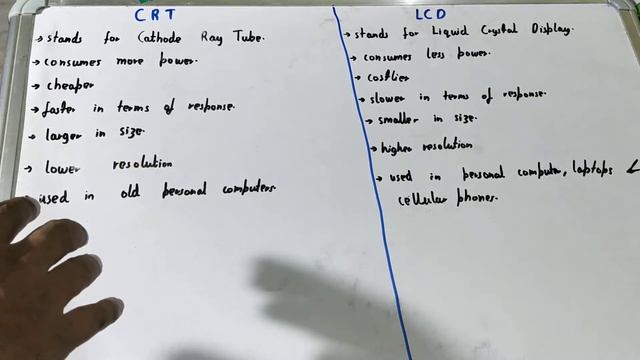 CRT
→ stands for Cathode Ray Tube.
→ consumes more power.
→ cheaper
→ faster in terms of response.
→ larger in size.
→ lower resolution
used in old personal computers.
LCD
→ stands for Liquid Crystal Display.
→ consumes less power.
→ costlier
→ slower in terms of response.
→ smaller in size.
→ higher resolution
→ used in personal computer, laptops &
cellular phones.